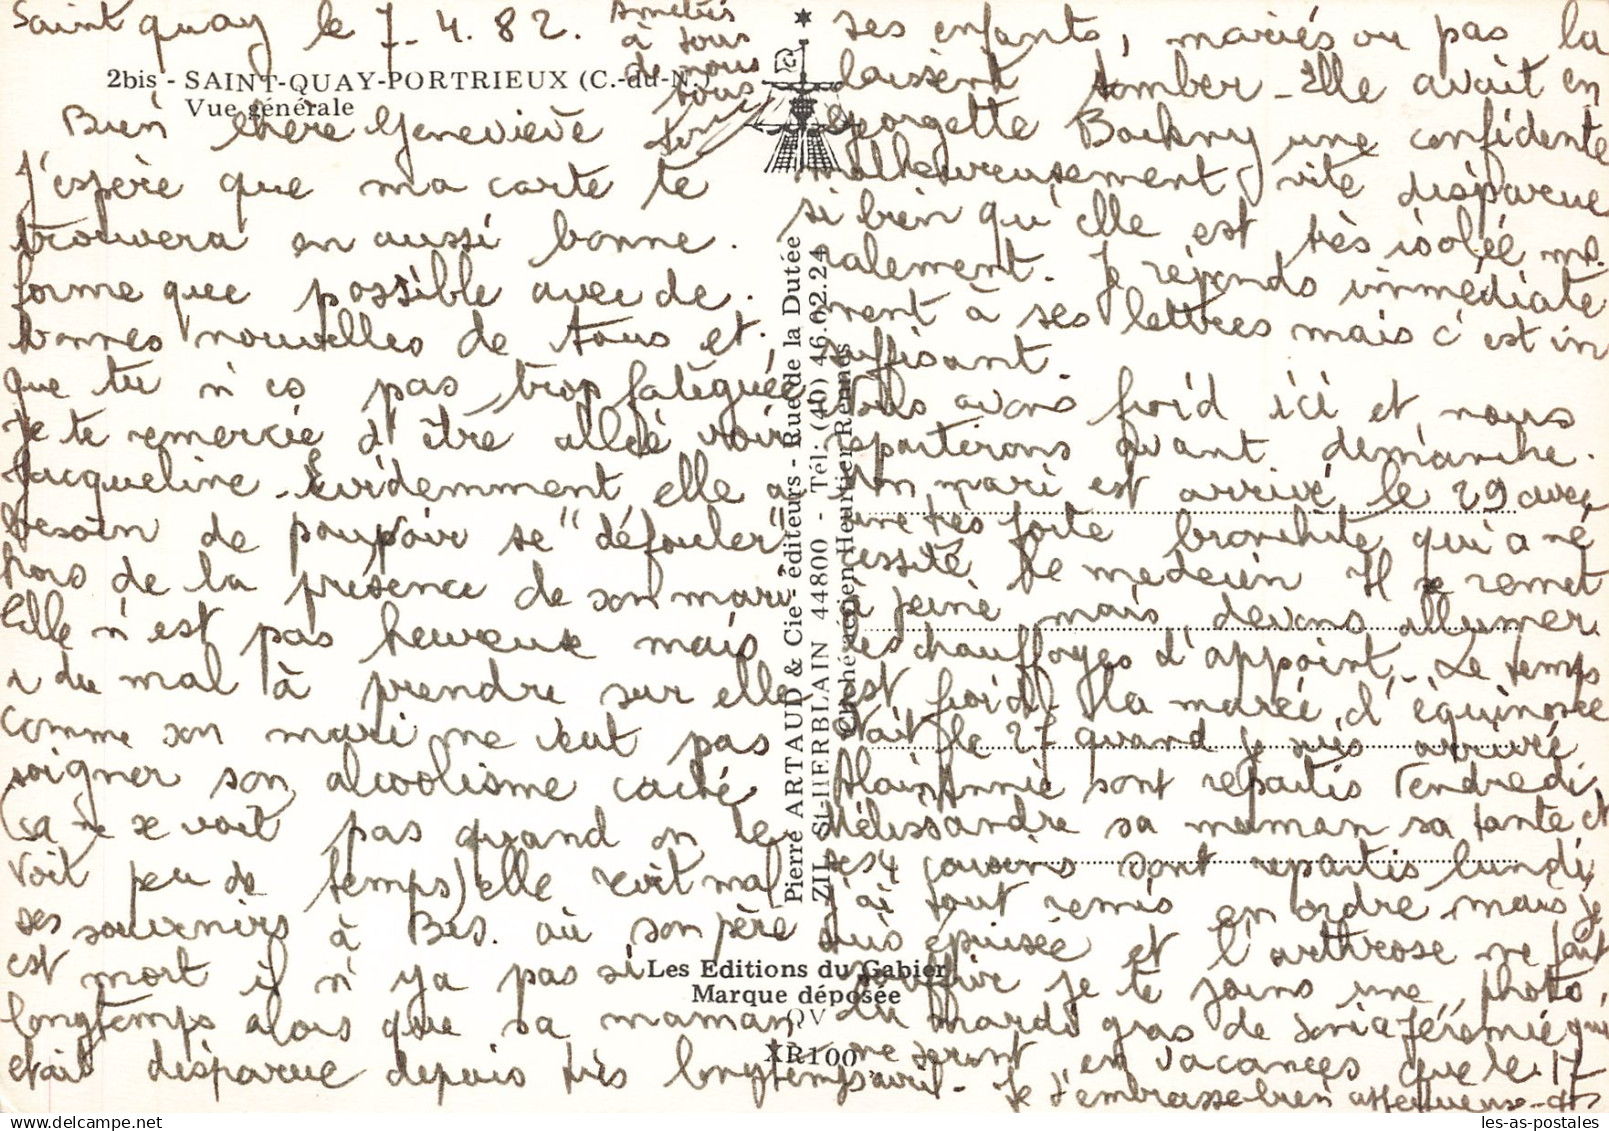 Saint quay le 7.4.82.
Amitiés
à tous
de nous
tous
2bis - SAINT-QUAY-PORTRIEUX (C.-du-N.)
Vue générale
Bien chère Geneviève
J'espère que ma carte te
trouvera en aussi bonne
forme que possible avec de
bonnes nouvelles de tous et
que tu n'es pas trop fatiguée
Je te remercie d'être allée voir
Jacqueline. Evidemment elle a
besoin de pouvoir se "défouler"
hors de la présence de son mari
Elle n'est pas heureuse mais
a du mal à prendre sur elle
comme son mari ne veut pas
soigner son alcoolisme caché
(ça ne se voit pas quand on le
voit peu de temps) elle revit mal
ses souvenirs à Bes. où son père
est mort il n'y a pas si
longtemps alors que sa maman
était disparue depuis très longtemps
ses enfants, mariés ou pas la
laissent tomber - Elle avait en
Georgette une confidente
malheureusement vite disparue
si bien qu'elle est très isolée mo
ralement. Je réponds immédiate
ment à ses lettres mais c'est in
suffisant.
Nous avons froid ici et nous
repartirons avant dimanche.
Mon mari est arrivé le 29 avec
une très forte bronchite qui a né
cessité le médecin Il se remet
à peine mais devons allumer
les chauffages d'appoint. Le temps
est froid la marée d'équinoxe
était le 27 quand je suis arrivée
Alain Annie sont repartis Vendredi,
Mélissandre sa maman sa tante et
ses 4 cousins sont repartis lundi,
j'ai tout remis en ordre mais je
suis épuisée et l'arthrose me fait
souffrir je te joins une photo,
du mardi gras de Sonia Jérémie qui
ne seront en vacances que le 17
avril - Je t'embrasse bien affectueuse-
Pierre ARTAUD & Cie - éditeurs - Rue de la Dutée
ZIL St-HERBLAIN 44800 - Tél.: (40) 46.02.24
Cliché aérien Heurtier Rennes
Les Editions du Gabier
Marque déposée
QV
XR100
les-as-postales